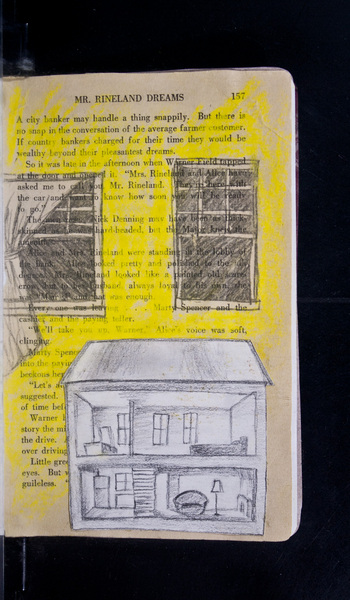 MR. RINELAND DREAMS 157
A city banker may handle a thing snappily. But there is
no snap in the conversation of the average farmer customer.
If country bankers charged for their time they would be
wealthy beyond their pleasantest dreams.
So it was late in the afternoon when Warner Field tapped
at the door and opened it. "Mrs. Rineland and Alice have
asked me to call you, Mr. Rineland. They're here with
the car and want to know how soon you will be ready
to go."
Nick Denning may have been as thick-
skinned as hard-headed, but the Major knew the
Alice and Mrs. Rineland were standing in the lobby of
the bank. Alice looked pretty and polished to the
Mrs. Rineland looked like a painted old scare-
crow, but to her husband, always loyal to his own, she
was and that was enough.
Every one was leaving Marty Spencer and the
cashier and the teller.
"We'll take you up, Warner," Alice's voice was soft,
clinging.
Marty Spenc
into the
beckons her
"Let's
suggested.
of time bef
Warner
story the mi
the drive.
over driving
Little gre
eyes. But
guileless. "